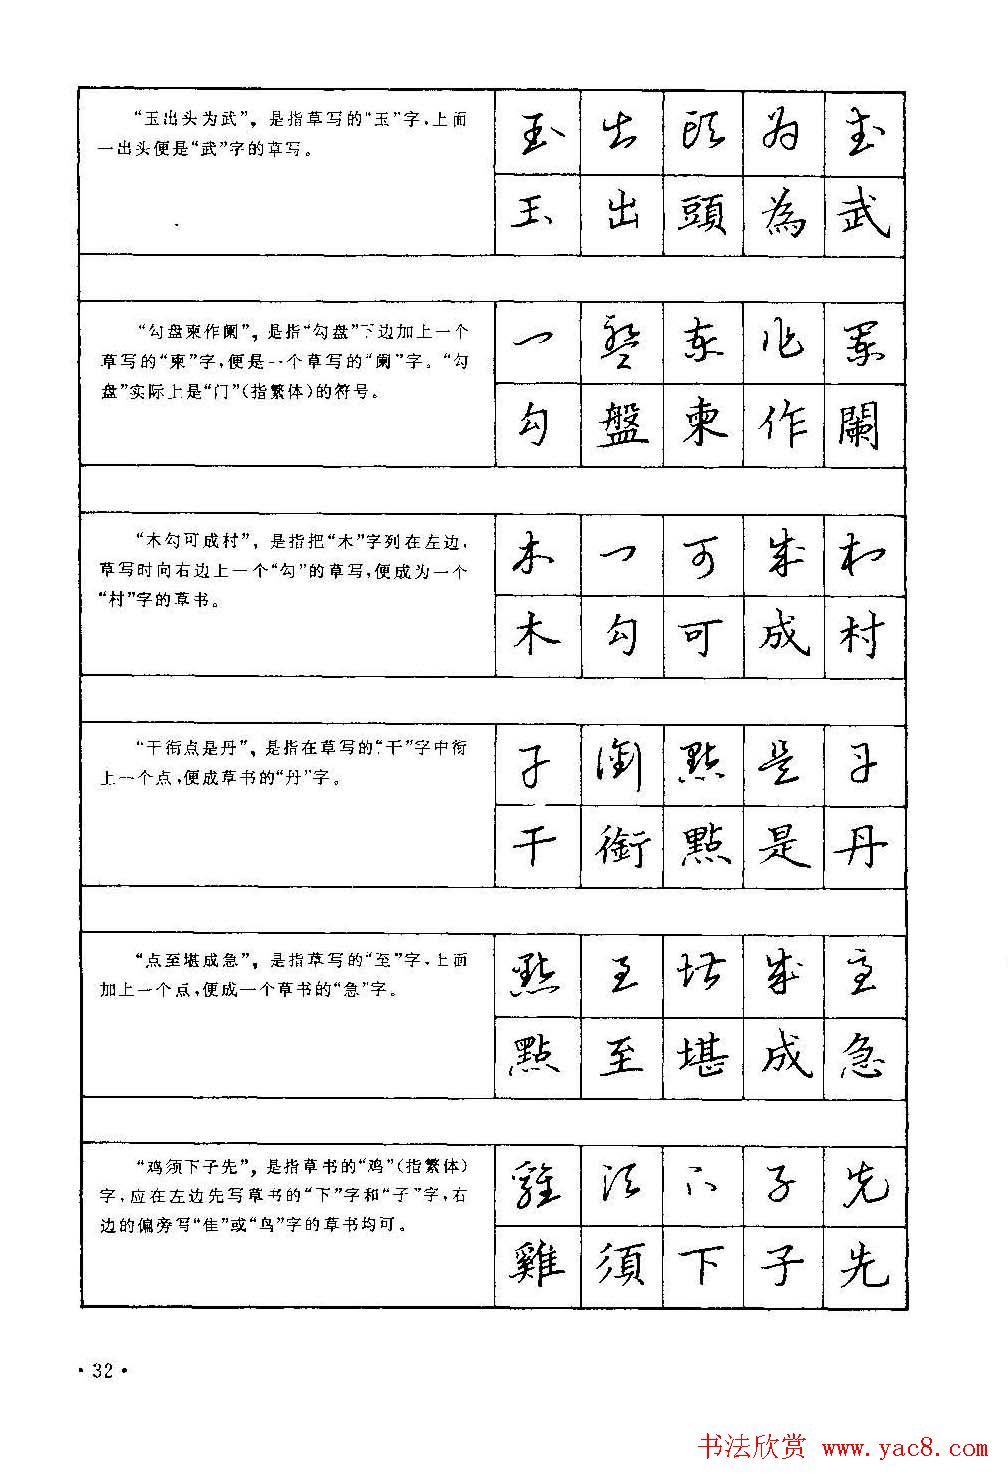 “玉出头为武”，是指草写的“玉”字，上面
一出头便是“武”字的草写。
玉出頭为武
玉出頭為武
“勾盘柬作阑”，是指“勾盘”下边加上一个
草写的“柬”字，便是一个草写的“阑”字。“勾
盘”实际上是“门”（指繁体）的符号。
勾盤柬作闌
勾盤柬作闌
“木勾可成村”，是指把“木”字列在左边，
草写时向右边上一个“勾”的草写，便成为一个
“村”字的草书。
木勾可成村
木勾可成村
“干衔点是丹”，是指在草写的“干”字中衔
上一个点，便成草书的“丹”字。
干衔點是丹
干衔點是丹
“点至堪成急”，是指草写的“至”字，上面
加上一个点，便成一个草书的“急”字。
點至堪成急
點至堪成急
“鸡须下子先”，是指草书的“鸡”（指繁体）
字，应在左边先写草书的“下”字和“子”字，右
边的偏旁写“隹”或“鸟”字的草书均可。
雞須下子先
雞須下子先
·32·
书法欣赏 www.yac8.com